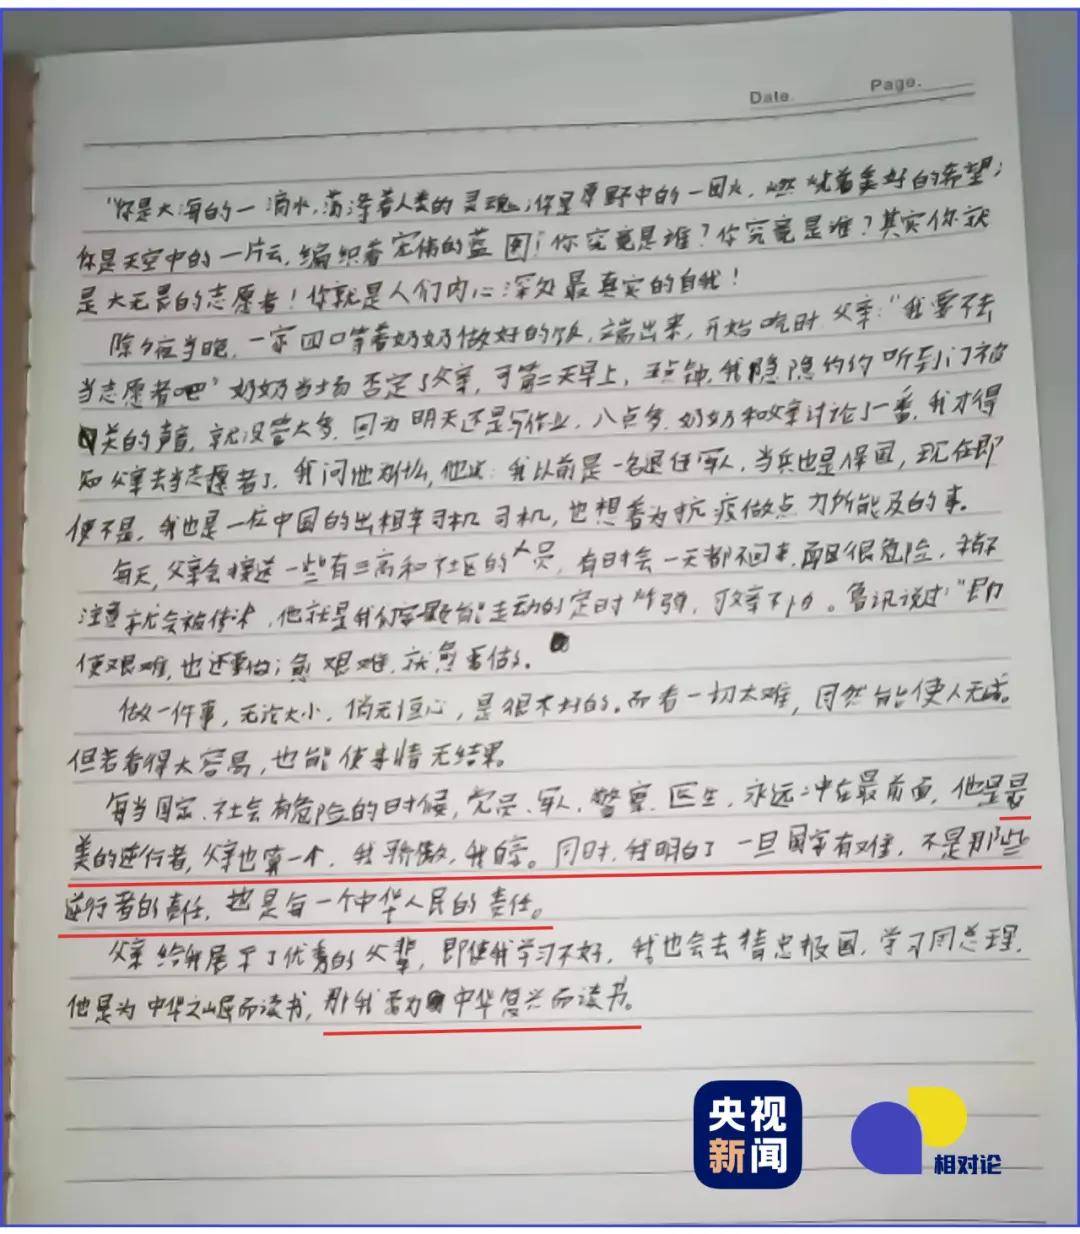 Date.
Page.
"你是大海的一滴水,荡涤着人类的灵魂;你是原野中的一团火,燃烧着美好的希望;
你是天空中的一片云,编织着宏伟的蓝图;你究竟是谁?你究竟是谁?其实你就
是大无畏的志愿者!你就是人们内心深处最真实的自我!
除夕夜当晚,一家四口等着奶奶做好的饭,端出来,开始吃时,父亲:"我要不去
当志愿者吧"奶奶当场否定了父亲,可第二天早上,五点钟,我隐隐约约听到门被
关的声音,就没管太多,因为明天还是写作业,八点多,奶奶和父亲讨论了一番,我才得
知父亲去当志愿者了,我问他为什么,他说:我以前是一名退伍军人,当兵也是保国,现在即
使不是,我也是一位中国的出租车司机 司机,也想着为抗疫做点力所能及的事。
每天,父亲会接送一些有三高和社区的人员,有时会一天都不回来,而且很危险,稍不
注意就会被传染,他就是我们家能走动的定时炸弹,可父亲不怕。鲁迅说过:"即
使艰难,也还要做;愈艰难,就愈要做。
做一件事,无论大小,倘无恒心,是很不好的。而看一切太难,固然能使人无成。
但若看得太容易,也能使事情无结果。
每当国家、社会有危险的时候,党员、军人、警察、医生,永远冲在最前面,他是最
美的逆行者,父亲也算一个,我骄傲,我自豪。同时,我明白了一旦国家有难,不是那些
逆行者的责任,也是每一个中华人民的责任。
父亲给我展示了优秀的父辈,即使我学习不好,我也会去精忠报国,学习周总理,
他是为中华之崛而读书,那我要为中华复兴而读书。
央视
新闻
相对论